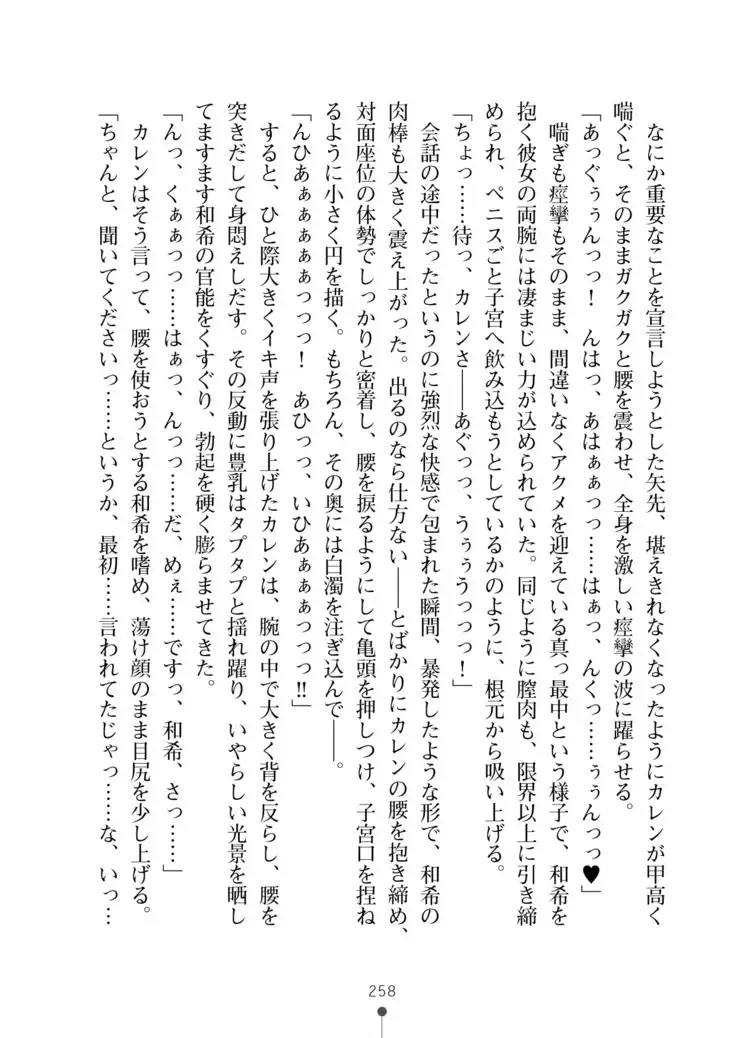 なにか重要なことを宣言しようとした矢先、堪えきれなくなったようにカレンが甲高く
喘ぐと、そのままガクガクと腰を震わせ、全身を激しい痙攣の波に躍らせる。
「あっぐぅぅんっっ！　んはっ、あはぁぁっっ……はぁっ、んくっ……ぅぅんっっ♥」
　喘ぎも痙攣もそのまま、間違いなくアクメを迎えている真っ最中という様子で、和希を
抱く彼女の両腕には凄まじい力が込められていた。同じように膣肉も、限界以上に引き締
められ、ペニスごと子宮へ飲み込もうとしているかのように、根元から吸い上げる。
「ちょっ……待っ、カレンさ――あぐっっ、うぅぅうっっっ！」
　会話の途中だったというのに強烈な快感で包まれた瞬間、暴発したような形で、和希の
肉棒も大きく震え上がった。出るのなら仕方ない――とばかりにカレンの腰を抱き締め、
対面座位の体勢でしっかりと密着し、腰を捩るようにして亀頭を押しつけ、子宮口を捏ね
るように小さく円を描く。もちろん、その奥には白濁を注ぎ込んで――。
「んひあぁぁぁぁぁっっっ！　あひっっ、いひあぁぁぁっっっ‼」
　すると、ひと際大きくイキ声を張り上げたカレンは、腕の中で大きく背を反らし、腰を
突きだして身悶えしだす。その反動に豊乳はタプタプと揺れ躍り、いやらしい光景を晒し
てますます和希の官能をくすぐり、勃起を硬く膨らませてきた。
「んっ、くぁぁっっ……はぁっ、んっっ……だ、めぇ……ですっ、和希、さっ……」
　カレンはそう言って、腰を使おうとする和希を嗜め、蕩け顔のまま目尻を少し上げる。
「ちゃんと、聞いてくださいっ……というか、最初……言われてたじゃっ……な、いっ…
258